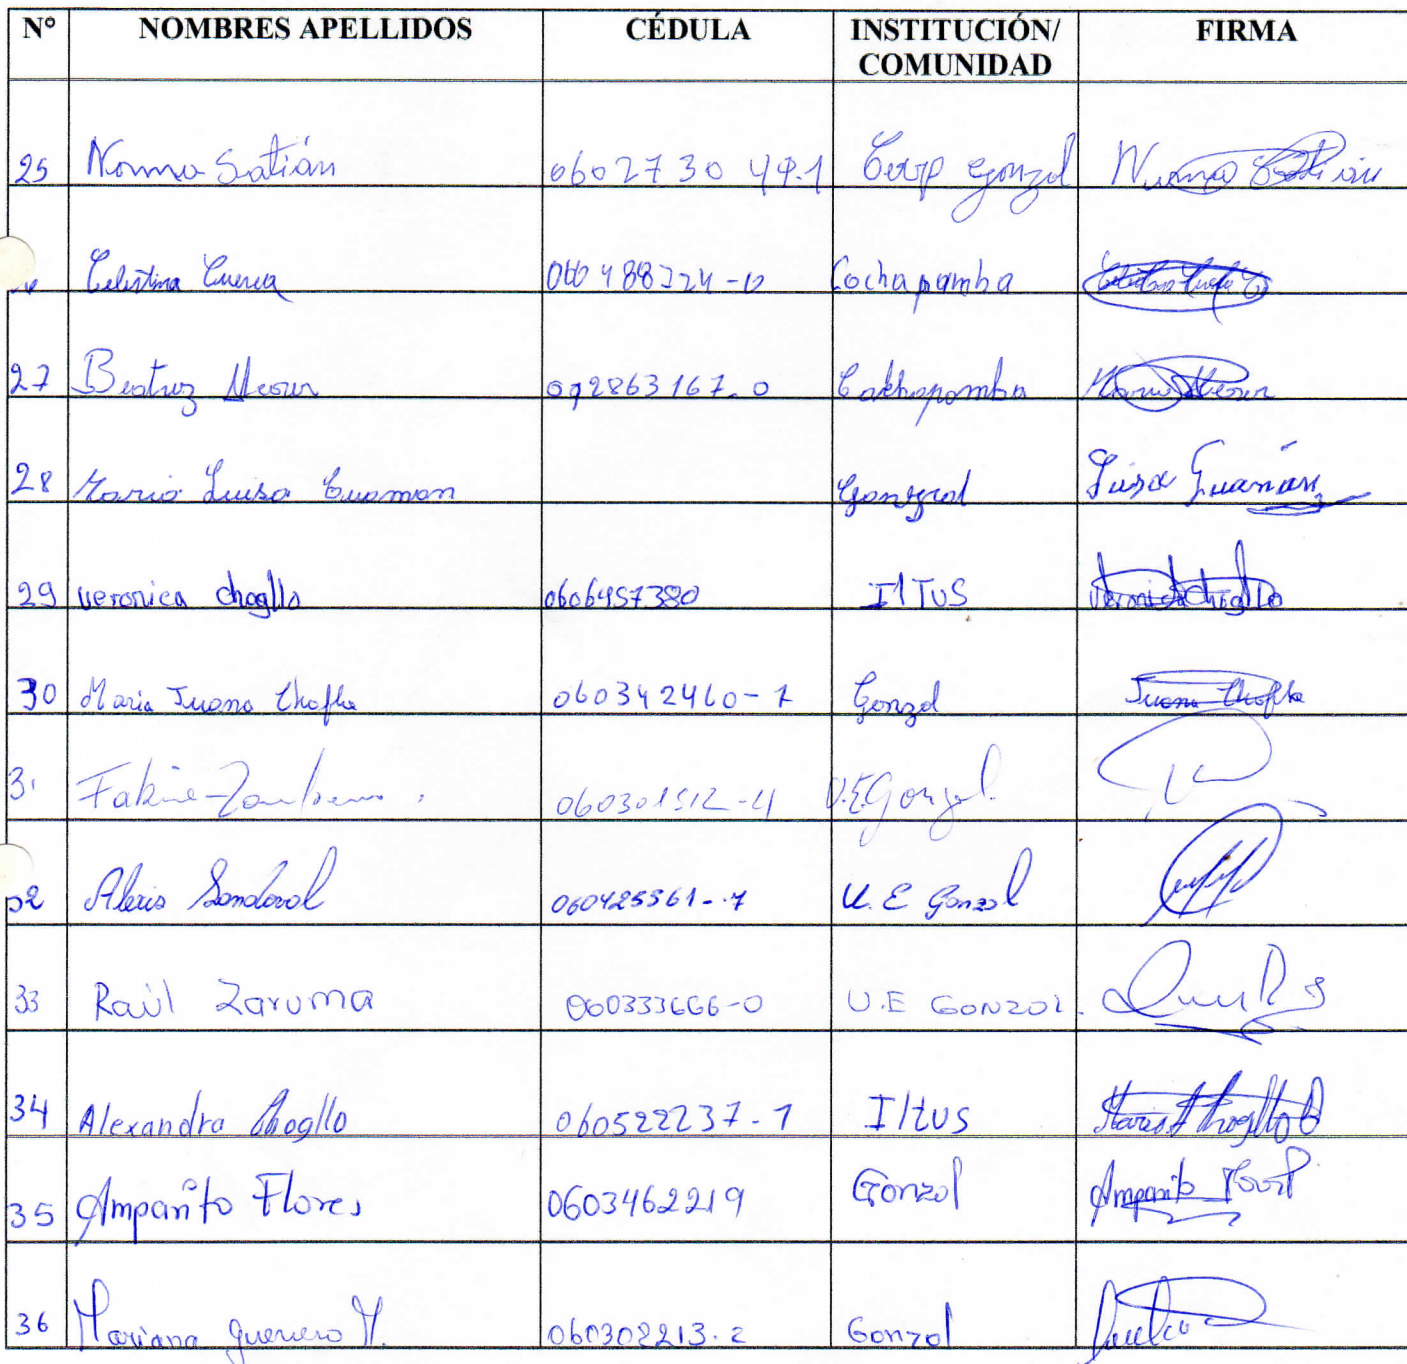 N° NOMBRES APELLIDOS CÉDULA INSTITUCIÓN/ COMUNIDAD FIRMA
25 Norma Satián 060273049-1 Gonzol Norma Satián
Celestina Cuenca Cochapamba
27 Beatriz 092863167-0 Cochapamba
28 Maria Luisa Guaman Gonzol Luisa Guamán
29 veronica chogllo 0606457380 IlTUS Veronica chogllo
30 Maria Juana Choflla 060342460-1 Gonzol Juana Choflla
060301512-4 U.E Gonzol
32 Alexis Sandoval 060425361-7 U.E Gonzol
33 Raúl Zaruma 060333666-0 U.E GONZOL
34 Alexandra Chogllo 060522237-1 Iltus
35 Amparito Flores 0603462219 Gonzol Amparito
36 Mariana guerrero M. 060302213-2 Gonzol